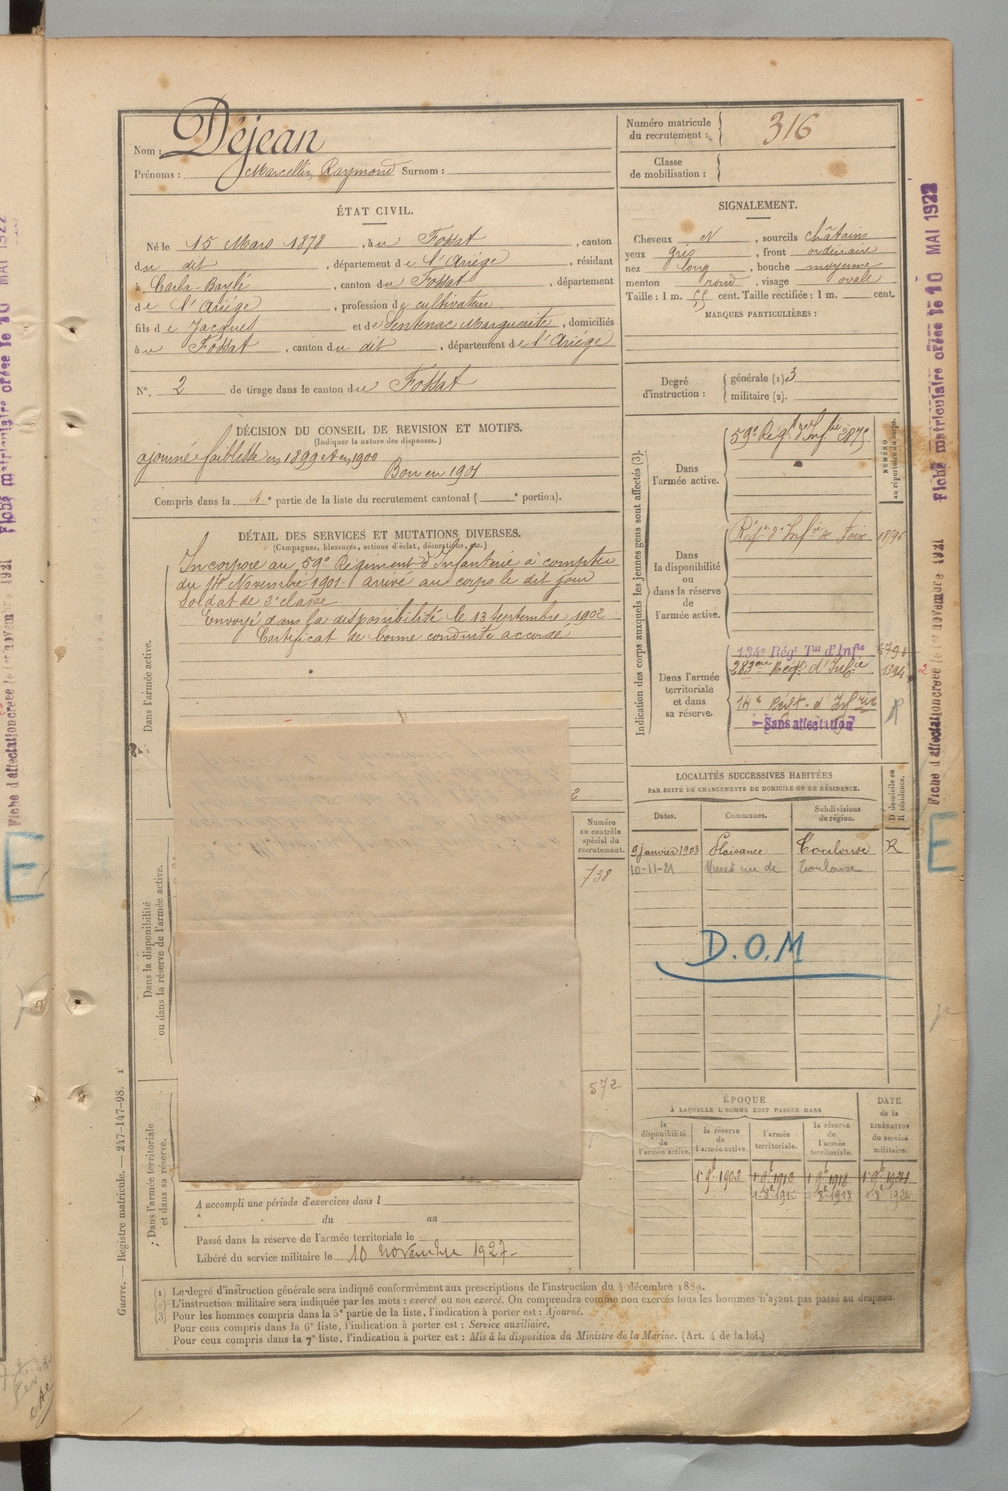 Nom : Déjean
Prénoms : Marcellin Raymond Surnom :
Numéro matricule du recrutement : 316
Classe de mobilisation :
ÉTAT CIVIL.
Né le 15 Mars 1878, à u Fossat, canton
du dit, département de l'Ariège, résidant
à Carla-Bayle, canton du Fossat, département
de l'Ariège, profession de cultivateur
fils de Jacques et de Sentenac Marguerite, domiciliés
à u Fossat, canton du dit, département de l'Ariège
N° 2 de tirage dans le canton du Fossat
SIGNALEMENT.
Cheveux N, sourcils châtains
yeux gris, front ordinaire
nez long, bouche moyenne
menton rond, visage ovale
Taille : 1 m. 55 cent. Taille rectifiée : 1 m. cent.
MARQUES PARTICULIÈRES :
Degré d'instruction : générale (1) 3
militaire (2).
DÉCISION DU CONSEIL DE REVISION ET MOTIFS.
(Indiquer la nature des dispenses.)
ajourné faiblesse en 1899 et en 1900
Bon en 1901
Compris dans la 1e partie de la liste du recrutement cantonal ( e portion).
DÉTAIL DES SERVICES ET MUTATIONS DIVERSES.
(Campagnes, blessures, actions d'éclat, décorations, etc.)
Dans l'armée active.
Incorporé au 59e Régiment d'Infanterie à compter
du 14 Novembre 1901. arrivé au corps le dit jour
Soldat de 2e classe
Envoyé dans la disponibilité le 13 Septembre 1902
Certificat de bonne conduite accordé
Dans la disponibilité ou dans la réserve de l'armée active.
Numéro au contrôle spécial du recrutement.
738
572
Dans l'armée territoriale et dans sa réserve.
A accompli une période d'exercices dans l
du au
Passé dans la réserve de l'armée territoriale le
Libéré du service militaire le 10 novembre 1927
Indication des corps auxquels les jeunes gens sont affectés (3).
NUMÉRO au répertoire du corps.
Dans l'armée active.
59e Régt d'Infie 3875
Dans la disponibilité ou dans la réserve de l'armée active.
Régt d'Infie de Foix
Dans l'armée territoriale et dans sa réserve.
134e Régt Tal d'Infie
283me Régt d'Infie
14e Régt d'Infrie R
Sans affectation
LOCALITÉS SUCCESSIVES HABITÉES
PAR SUITE DE CHANGEMENTS DE DOMICILE OU DE RÉSIDENCE.
Dates. Communes. Subdivisions de région. D domicile ou R résidence.
9 janvier 1903 Plaisance Toulouse R
10-11-21 Muret rue de Toulouse
D.O.M
ÉPOQUE
À LAQUELLE L'HOMME DOIT PASSER DANS
DATE de la LIBÉRATION du service militaire.
la disponibilité de l'armée active.
la réserve de l'armée active.
l'armée territoriale.
la réserve de l'armée territoriale.
(1) Le degré d'instruction générale sera indiqué conformément aux prescriptions de l'instruction du 4 décembre 1889.
(2) L'instruction militaire sera indiquée par les mots : exercé ou non exercé. On comprendra comme non exercés tous les hommes n'ayant pas passé au drapeau.
(3) Pour les hommes compris dans la 5e partie de la liste, l'indication à porter est : Ajourné.
Pour ceux compris dans la 6e liste, l'indication à porter est : Service auxiliaire.
Pour ceux compris dans la 7e liste, l'indication à porter est : Mis à la disposition du Ministre de la Marine. (Art. 4 de la loi.)
Guerre. — Registre matricule. — 247-147-98.
Fiche matriculaire créée le 10 MAI 1922
Fiche d'affectation créée le novembre 1921
E
E